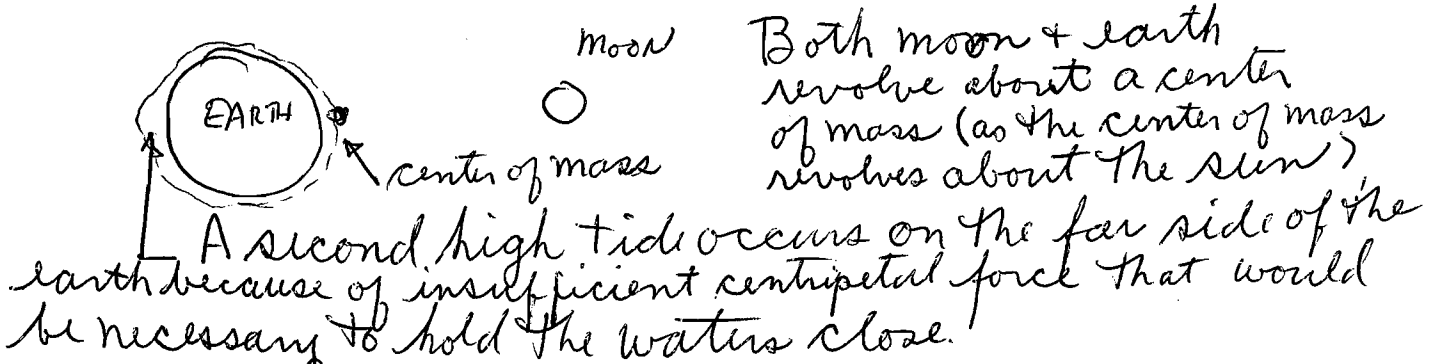 MOON
EARTH
center of mass
Both moon + earth
revolve about a center
of mass (as the center of mass
revolves about the sun)
A second high tide occurs on the far side of the
earth because of insufficient centripetal force that would
be necessary to hold the waters close.